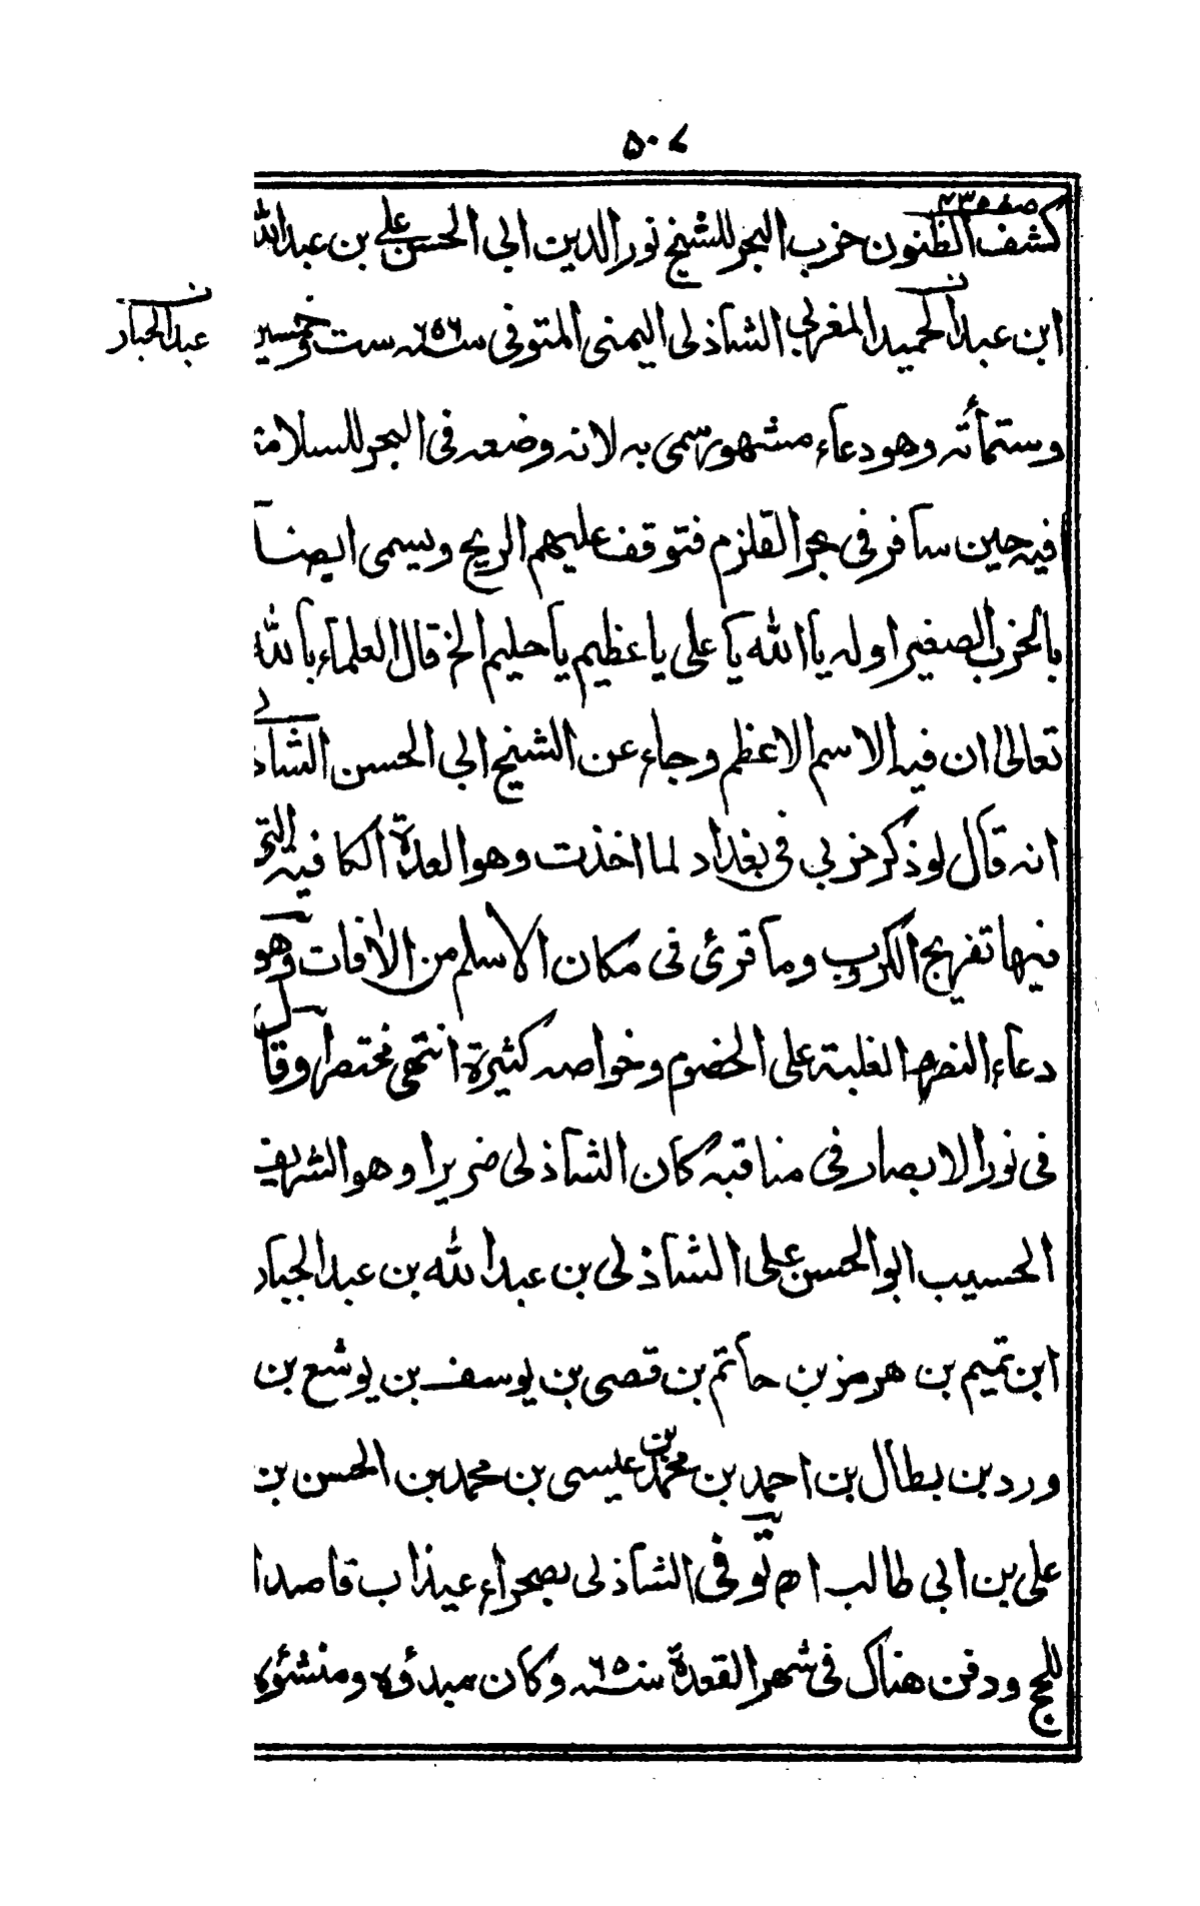 ٥٠٧
صفحه ٤٣٥
كشف الظنون حزب البحر للشيخ نور الدين ابي الحسن علي بن عبد الله
ابن عبد الحميد المغربي الشاذلي اليمني المتوفي سنة ٦٥٦ ست وخمسين
عبد الجبار
وستمأته وهو دعاء مشهور سمى به لانه وضعه في البحر للسلامة
فيه حين سافر في بحر القلزم فتوقف عليهم الريح ويسمى ايضا
بالحزب الصغير اوله يا الله يا على يا عظيم يا حليم الخ قال العلماء بالله
تعالى ان فيه الاسم الاعظم وجاء عن الشيخ ابي الحسن الشاذلي
انه قال لو ذكر حزبي في بغداد لما اخذت وهو العدة الكافيه التي
فيها تفريج الكروب وما قرئ في مكان الا سلم من الافات وهو
دعاء النصر والغلبة على الخصوم وخواصه كثيرة انتهى مختصرا وقال
في نور الابصار في مناقبه كان الشاذلي ضريرا وهو الشريف
الحسيب ابو الحسن على الشاذلى بن عبد الله بن عبد الجبار
ابن تميم بن هرمز بن حاتم بن قصى بن يوسف بن يوشع بن
ورد بن بطال بن احمد بن محمد بن عيسى بن محمد بن الحسن بن
على بن ابي طالب اه توفي الشاذلى بصحراء عيذاب قاصدا
للحج ودفن هناك في شهر القعدة سنة ٦٥ وكان مبدؤه ومنشؤه